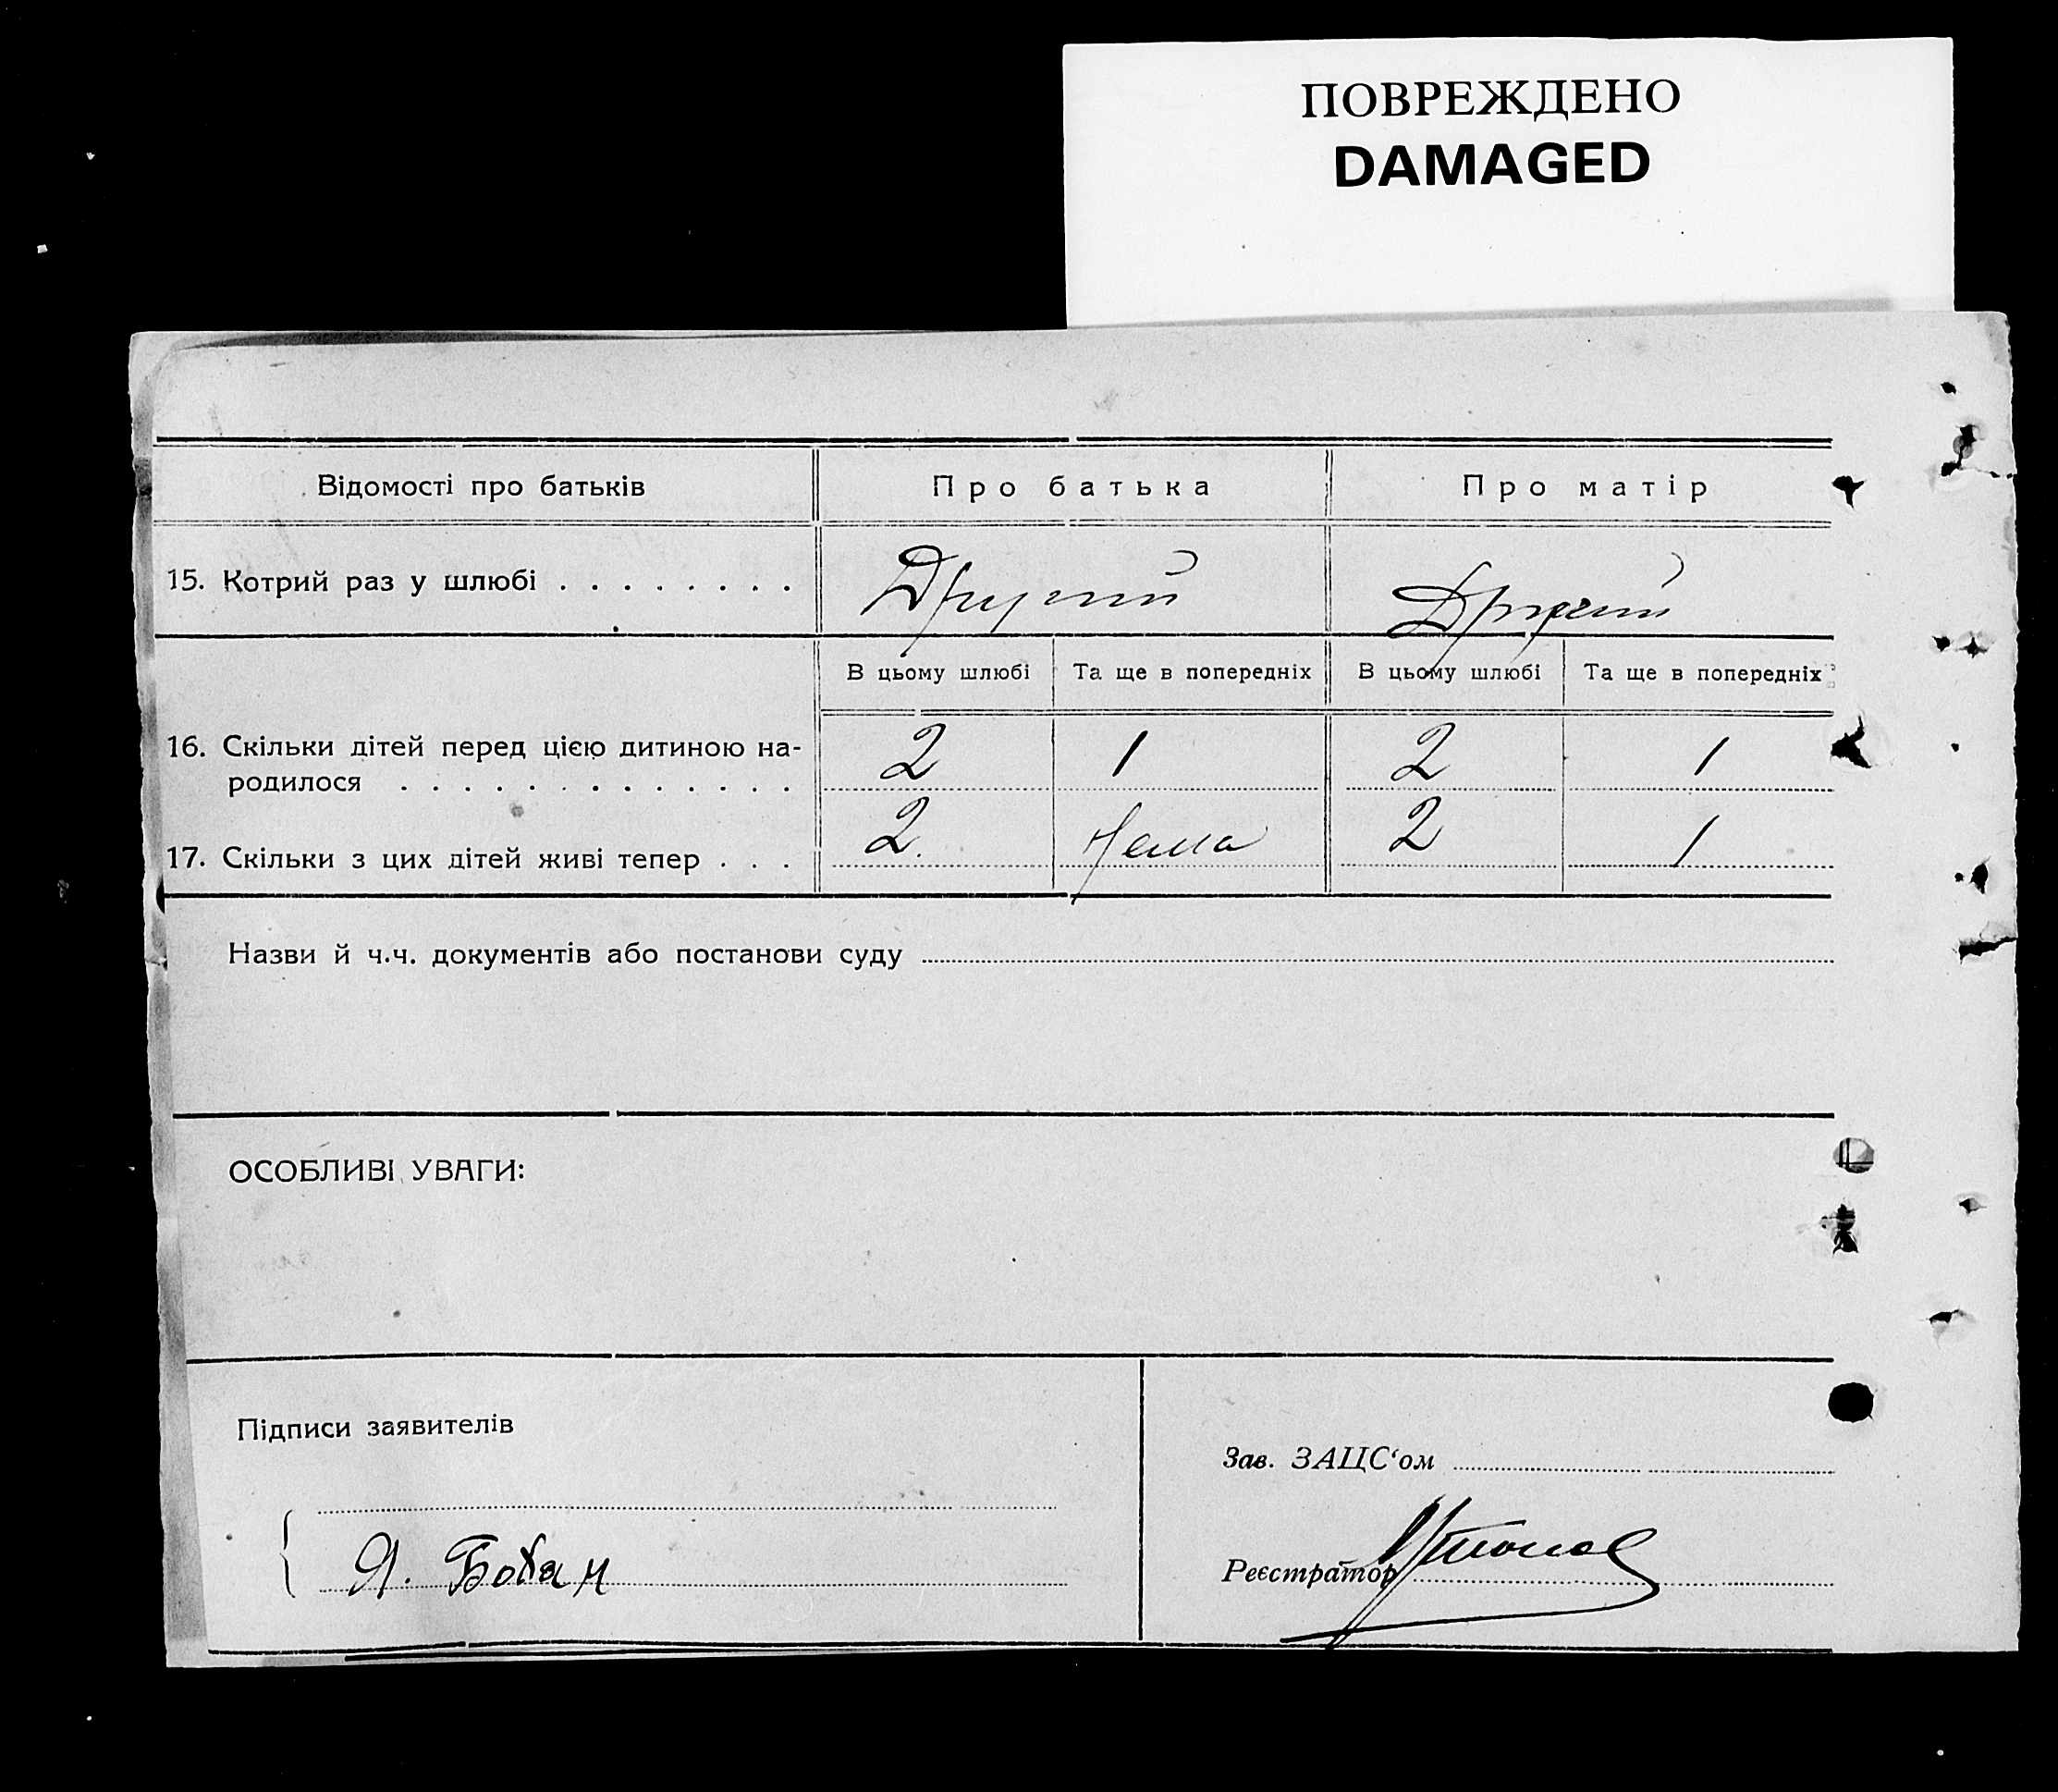 ПОВРЕЖДЕНО
DAMAGED
Відомості про батьків Про батька Про матір
15. Котрий раз у шлюбі . . . . . . . . Другий Другий
В цьому шлюбі Та ще в попередніх В цьому шлюбі Та ще в попередніх
16. Скільки дітей перед цією дитиною на-
родилося . . . . . . . . . . . . . 2 1 2 1
17. Скільки з цих дітей живі тепер . . . 2. Нема 2 1
Назви й ч.ч. документів або постанови суду
ОСОБЛИВІ УВАГИ:
Підписи заявителів
Зав. ЗАЦС‘ом
Я. Бохан
Реєстратор